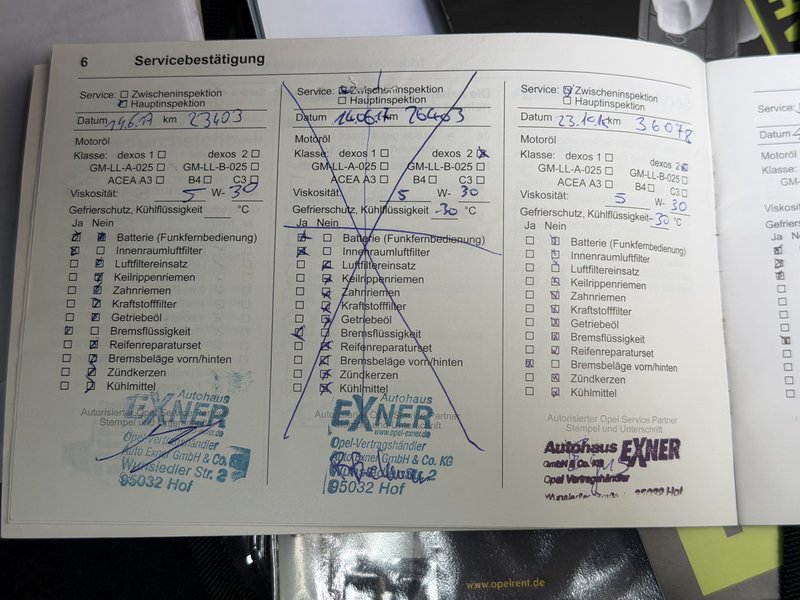 6 Servicebestätigung
Service: Zwischeninspektion
Hauptinspektion
Datum 14.6.17 km 23403
Motoröl
Klasse: dexos 1 dexos 2
GM-LL-A-025 GM-LL-B-025
ACEA A3 B4 C3
Viskosität: 5 W- 30
Gefrierschutz, Kühlflüssigkeit °C
Ja Nein
Batterie (Funkfernbedienung)
Innenraumluftfilter
Luftfiltereinsatz
Keilrippenriemen
Zahnriemen
Kraftstofffilter
Getriebeöl
Bremsflüssigkeit
Reifenreparaturset
Bremsbeläge vorn/hinten
Zündkerzen
Kühlmittel
Autorisierter Opel Service Partner
Stempel und Unterschrift
Autohaus
EXNER
Opel-Vertragshändler
Auto Exner GmbH & Co. KG
Wunsiedler Str. 2
95032 Hof
Service: Zwischeninspektion
Hauptinspektion
Datum 14.06.17 km 26403
Motoröl
Klasse: dexos 1 dexos 2
GM-LL-A-025 GM-LL-B-025
ACEA A3 B4 C3
Viskosität: 5 W- 30
Gefrierschutz, Kühlflüssigkeit -30 °C
Ja Nein
Batterie (Funkfernbedienung)
Innenraumluftfilter
Luftfiltereinsatz
Keilrippenriemen
Zahnriemen
Kraftstofffilter
Getriebeöl
Bremsflüssigkeit
Reifenreparaturset
Bremsbeläge vorn/hinten
Zündkerzen
Kühlmittel
Autohaus
EXNER
www.opel-exner.de
Opel-Vertragshändler
Auto Exner GmbH & Co. KG
2
95032 Hof
Service: Zwischeninspektion
Hauptinspektion
Datum 23.10. km 36078
Motoröl
Klasse: dexos 1 dexos 2
GM-LL-A-025 GM-LL-B-025
ACEA A3 B4 C3
Viskosität: 5 W- 30
Gefrierschutz, Kühlflüssigkeit -30 °C
Ja Nein
Batterie (Funkfernbedienung)
Innenraumluftfilter
Luftfiltereinsatz
Keilrippenriemen
Zahnriemen
Kraftstofffilter
Getriebeöl
Bremsflüssigkeit
Reifenreparaturset
Bremsbeläge vorn/hinten
Zündkerzen
Kühlmittel
Autorisierter Opel Service Partner
Stempel und Unterschrift
Autohaus EXNER
GmbH & Co. KG
Opel Vertragshändler
95032 Hof
Service:
Datum
Motoröl
Klasse:
Viskosität
Gefriersc
Ja Nein
www.opelrent.de